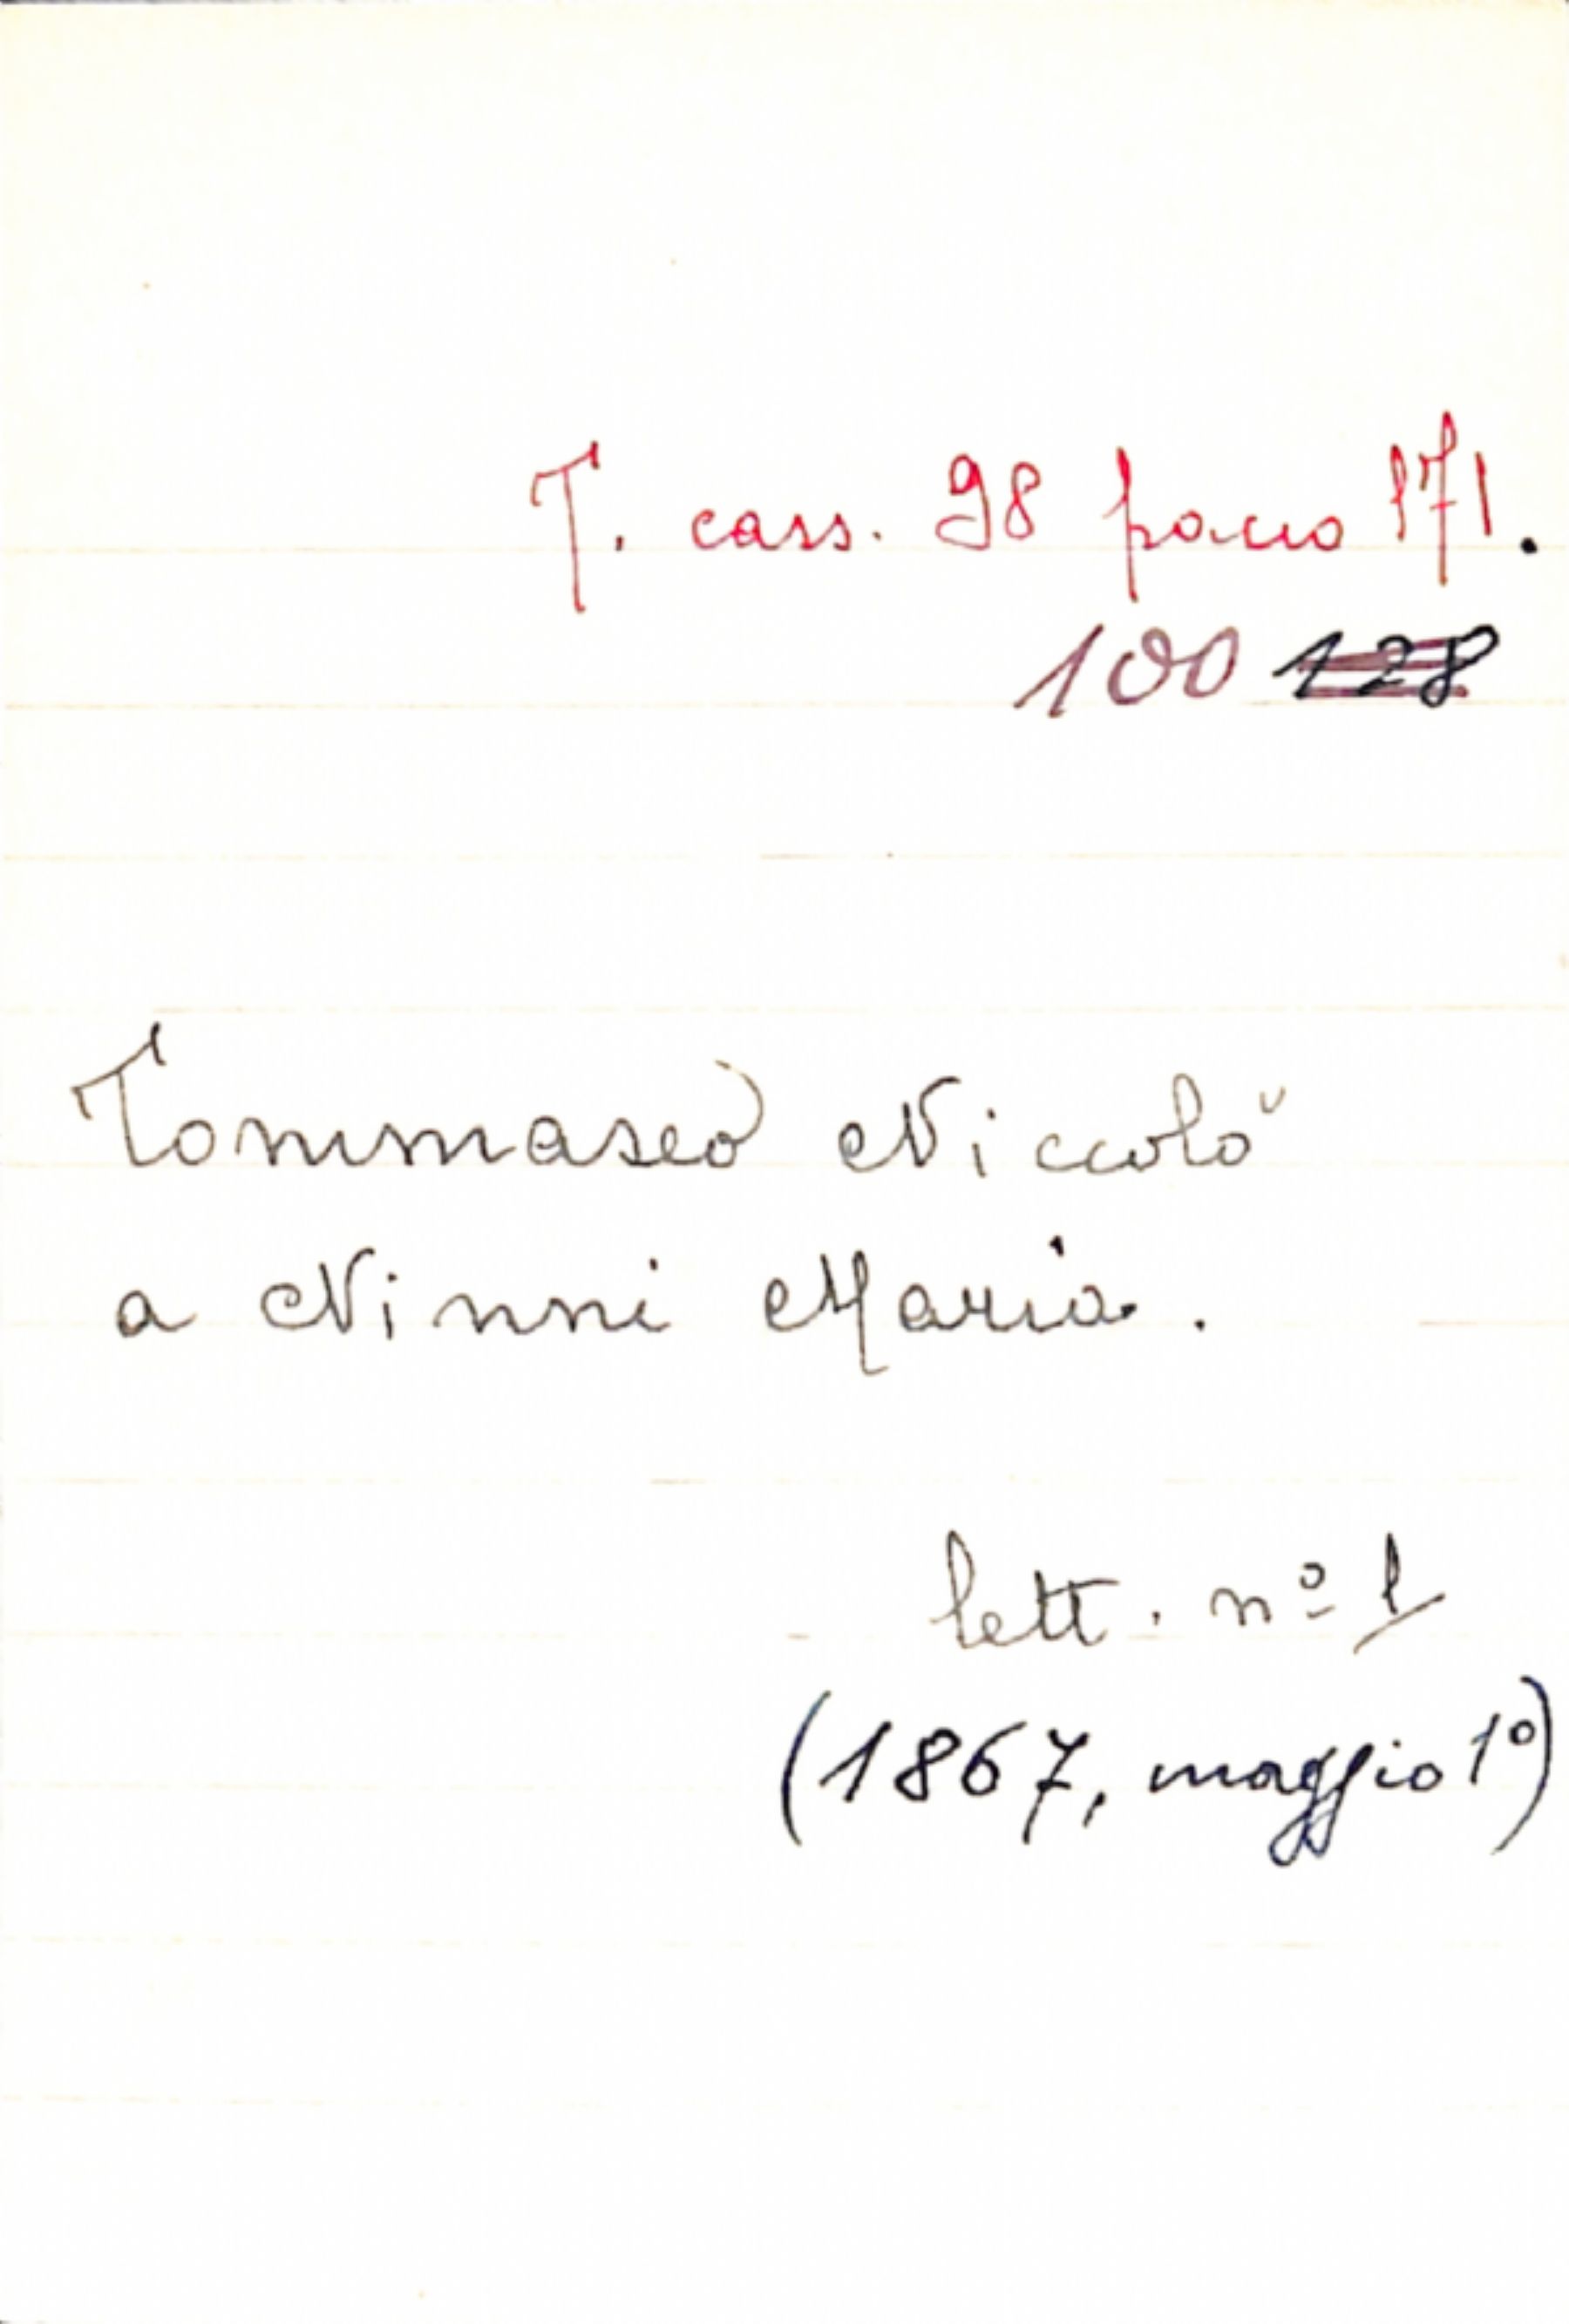 T. cass. 98 pacco 171.
100 128
Tommaseo Niccolò
a Ninni Maria.
lett. nº 1
(1867, maggio 1º)